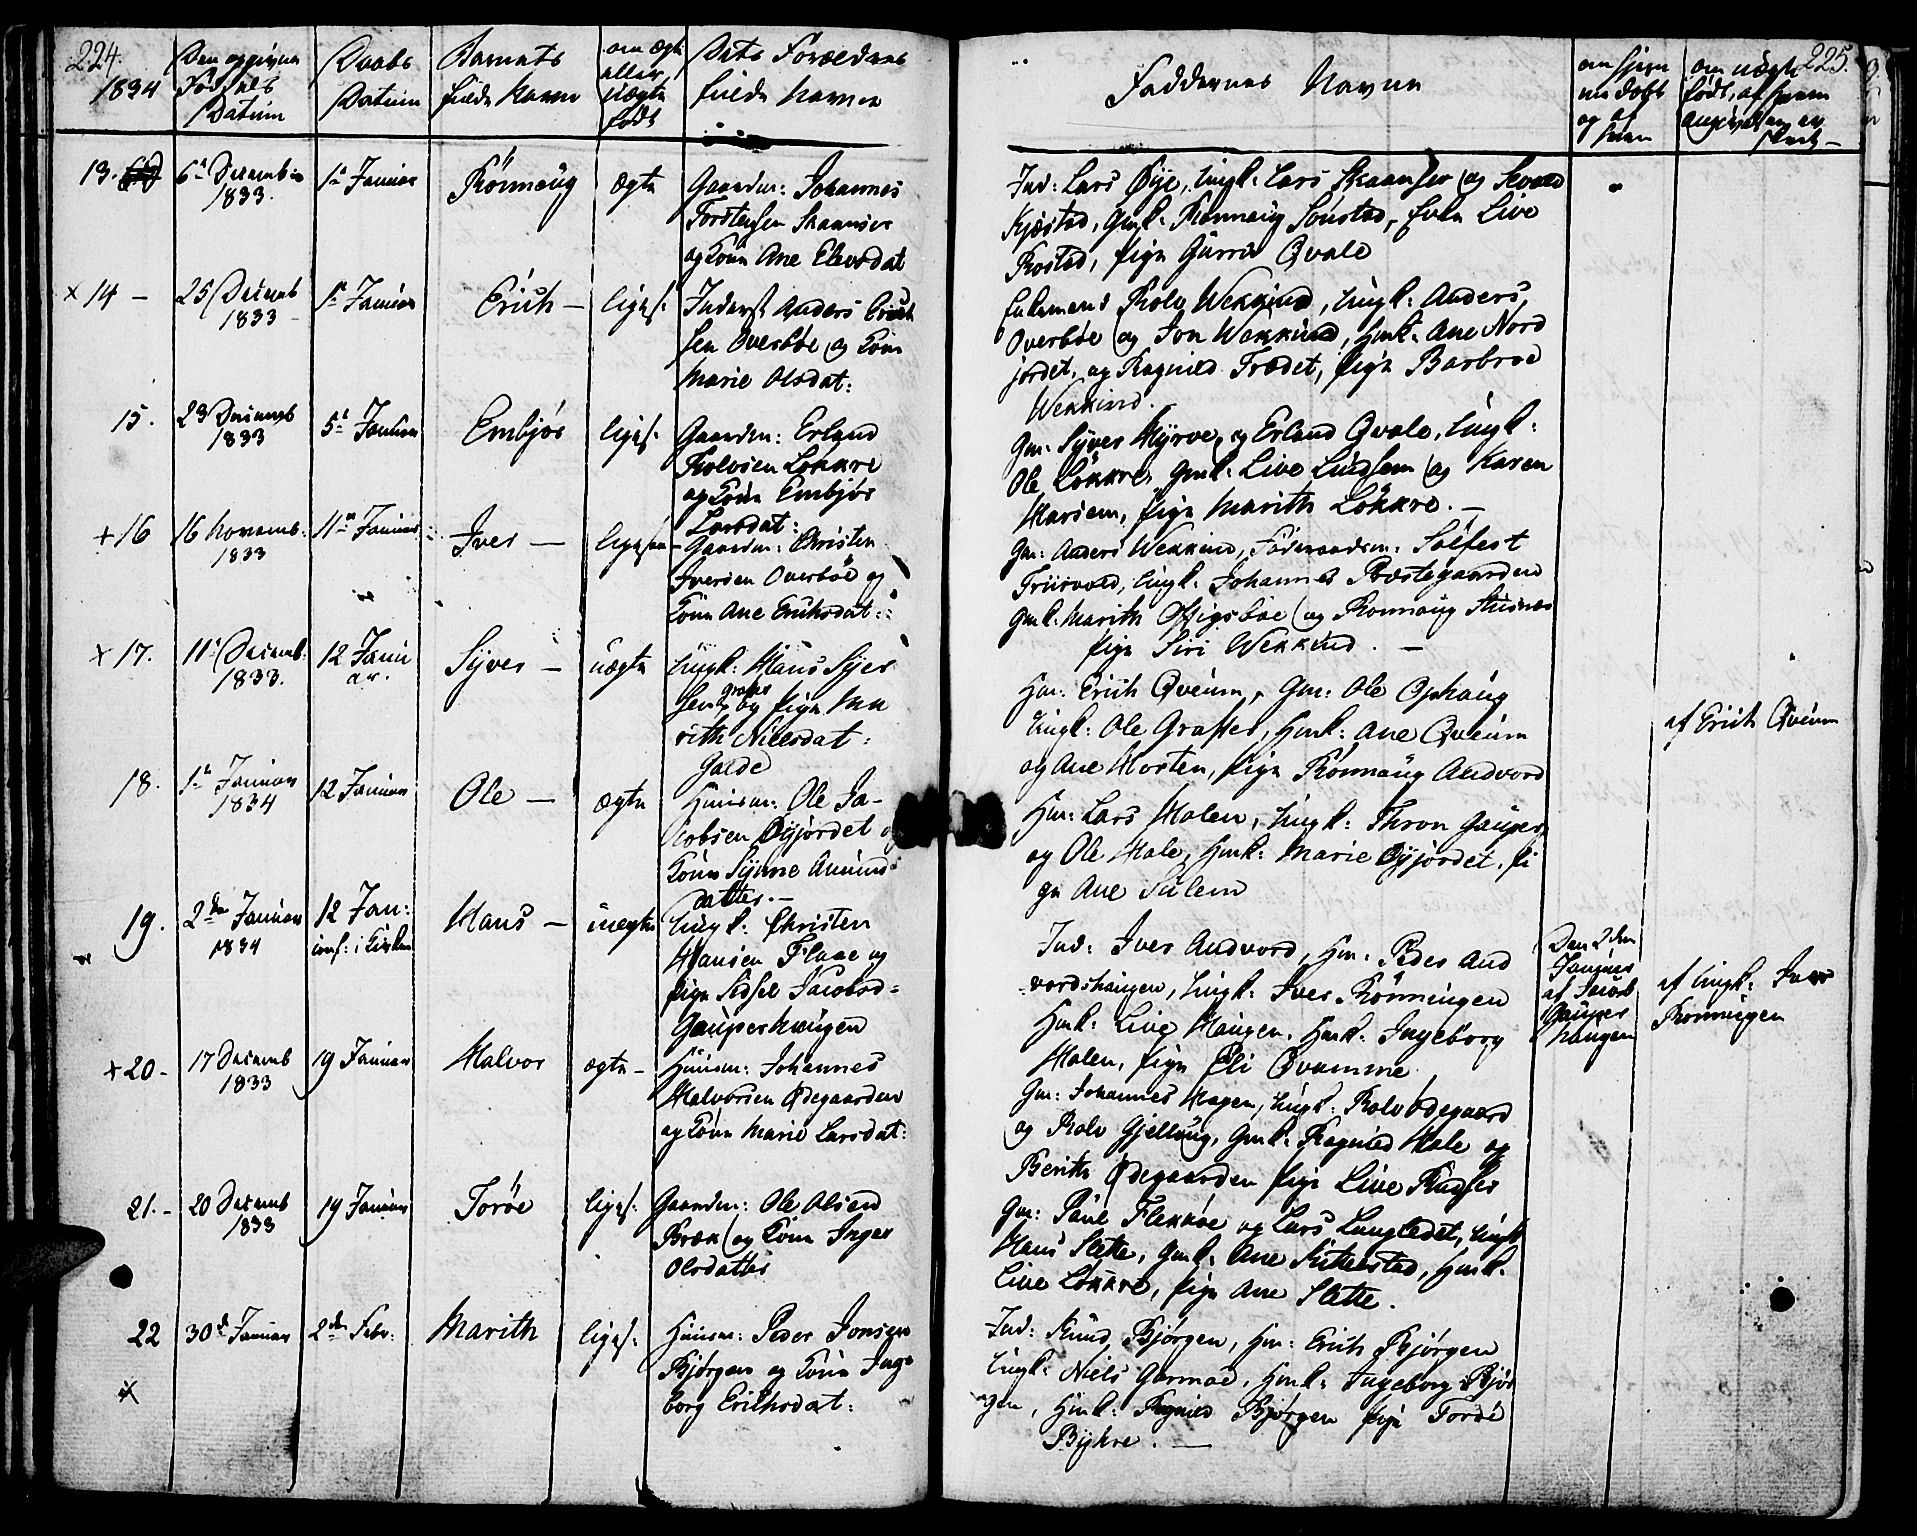 224.
1834
Den opgivne
Fødsels
Datum
Daabs
Datum
Barnets
fulde Navn
om ægte
eller
uægte
født
Dets Forældres
fulde Navne
Faddernes Navne
om hjem
me døbt
og af
hvem
225.
om uægte
født, af hvem
angivelsen er
skeet –
13.
6te Decembr
1833.
1te Januar
Rönnaug
ægte
Gaardm: Johannes
Torstensen Skaanser
og Kone Ane Elevsdat
Ind: Lars Øye, Ungk: Lars Skaanser og
Kjæstad, Gmk: Rönnaug Sönstad, Enke Live
Rostad, Pige Gurri Qvale
x 14 –
25 Decemb
1833 –
1te Januar
Erich –
liges.
Inderst Anders Erich
sen Overböe og Kone
Marie Olsdat:
Enkemand Rolv Wekkind, Ungk: Anders
Overböe og Jon Wekkind, Hmk. Ane Nord
jordet, og Ragnild Trædet, Pige Barbroe
Wekkind.
15.
23 Decemb
1833
5te Januar
Embjör
ligef.
Gaardm: Erland
Rolvsen Lökkre
og Kone Embjör
Larsdat:
Gm: Syver Hyrve, og Erland Qvale, Ungk:
Ole Lökkre, Gmk: Live Lindsem og Karen
Harsem, Pige Marith Lökkre. –
+ 16
16 Novemb:
1833
11te Januar
Iver –
ligesaa –
Gaardm: Christen
Iversen Overböe og
Kone Ane Erichsdat:
Gm: Anders Wekkind, Föderaadsm: Sölfest
Ungk. Johannes Præstegaarden
Gmk. Marith Offigsböe og Rönnaug
Pige Siri Wekkind. –
x 17.
11te Decemb:
1833.
12 Janu
ar.
Syver –
uægte
Ungk: Hans Syver
sen Graffer og Pige Ma
rith Nielsdat:
Galde
Hm: Erich Qveum, Gm: Ole Ophaug
Ungk: Ole Graffer, Hmk: Ane Qveum
og Ane Horten, Pige Rönnaug Andvord
af Erich Qveum
18.
1te Januar
1834
12 Januar
Ole –
ægte
Huusm: Ole Ja-
cobsen Öyjordet og
Kone Synne Amunds
datter. –
Hm: Lars Molen, Ungk: Thron Gauper
og Ole Hole, Hmk: Marie Öyjordet, Pi
ge Ane Sulem
19.
2den Januar
1834
12 Jan:
conf: i Kirken
Hans –
uægte
Ungk: Christen
Hansen Flaae og
Pige Sidsel Jacobsd=
Gauperhaugen
Ind: Iver Andvord, Hm: Peder And
vordshaugen, Ungk: Iver Rönningen
Hmk: Live Haugen, Hmk: Ingeborg
Molen, Pige Eli Qvamme
Den 2den
Januar
af Jacob
Gauper
haugen
af Ungk: Iver
Rönningen
+ 20 –
17 Decemb
1833
19 Januar
Halvor
ægte –
Huusm: Johannes
Halvorsen Ødegaarden
og Kone Marie Larsdat:
Gm: Johannes Hagen, Ungk: Rolv Ødegaard
og Rolv Gjellöug, Gmk: Ragnild Hole og
Berith Ødegaarden Pige Live
21. –
20 Decemb
1833
19 Januar
Toröe
ligef.
Gaardm: Ole Olsen
Bræk og Kone Inger
Olsdatter
Gm: Paul Flekköe og Lars Lungledet, Ungk
Hans Slette, Gmk: Ane Kittelstad, Hmk.
Live Lökkre, Pige Ane Slette.
22
x
30te Januar
2den Febr:
Marith
ligef.
Huusm: Peder Jonsen
Bjørgen og Kone Inge
borg Erichsdat:
Ind: Knud Bjørgen, Hm: Erich Bjørgen
Ungk: Niels Garmoe, Hmk: Ingeborg Björ
gen, Hmk: Ragnild Bjørgen Pige Toröe
Bykre. –